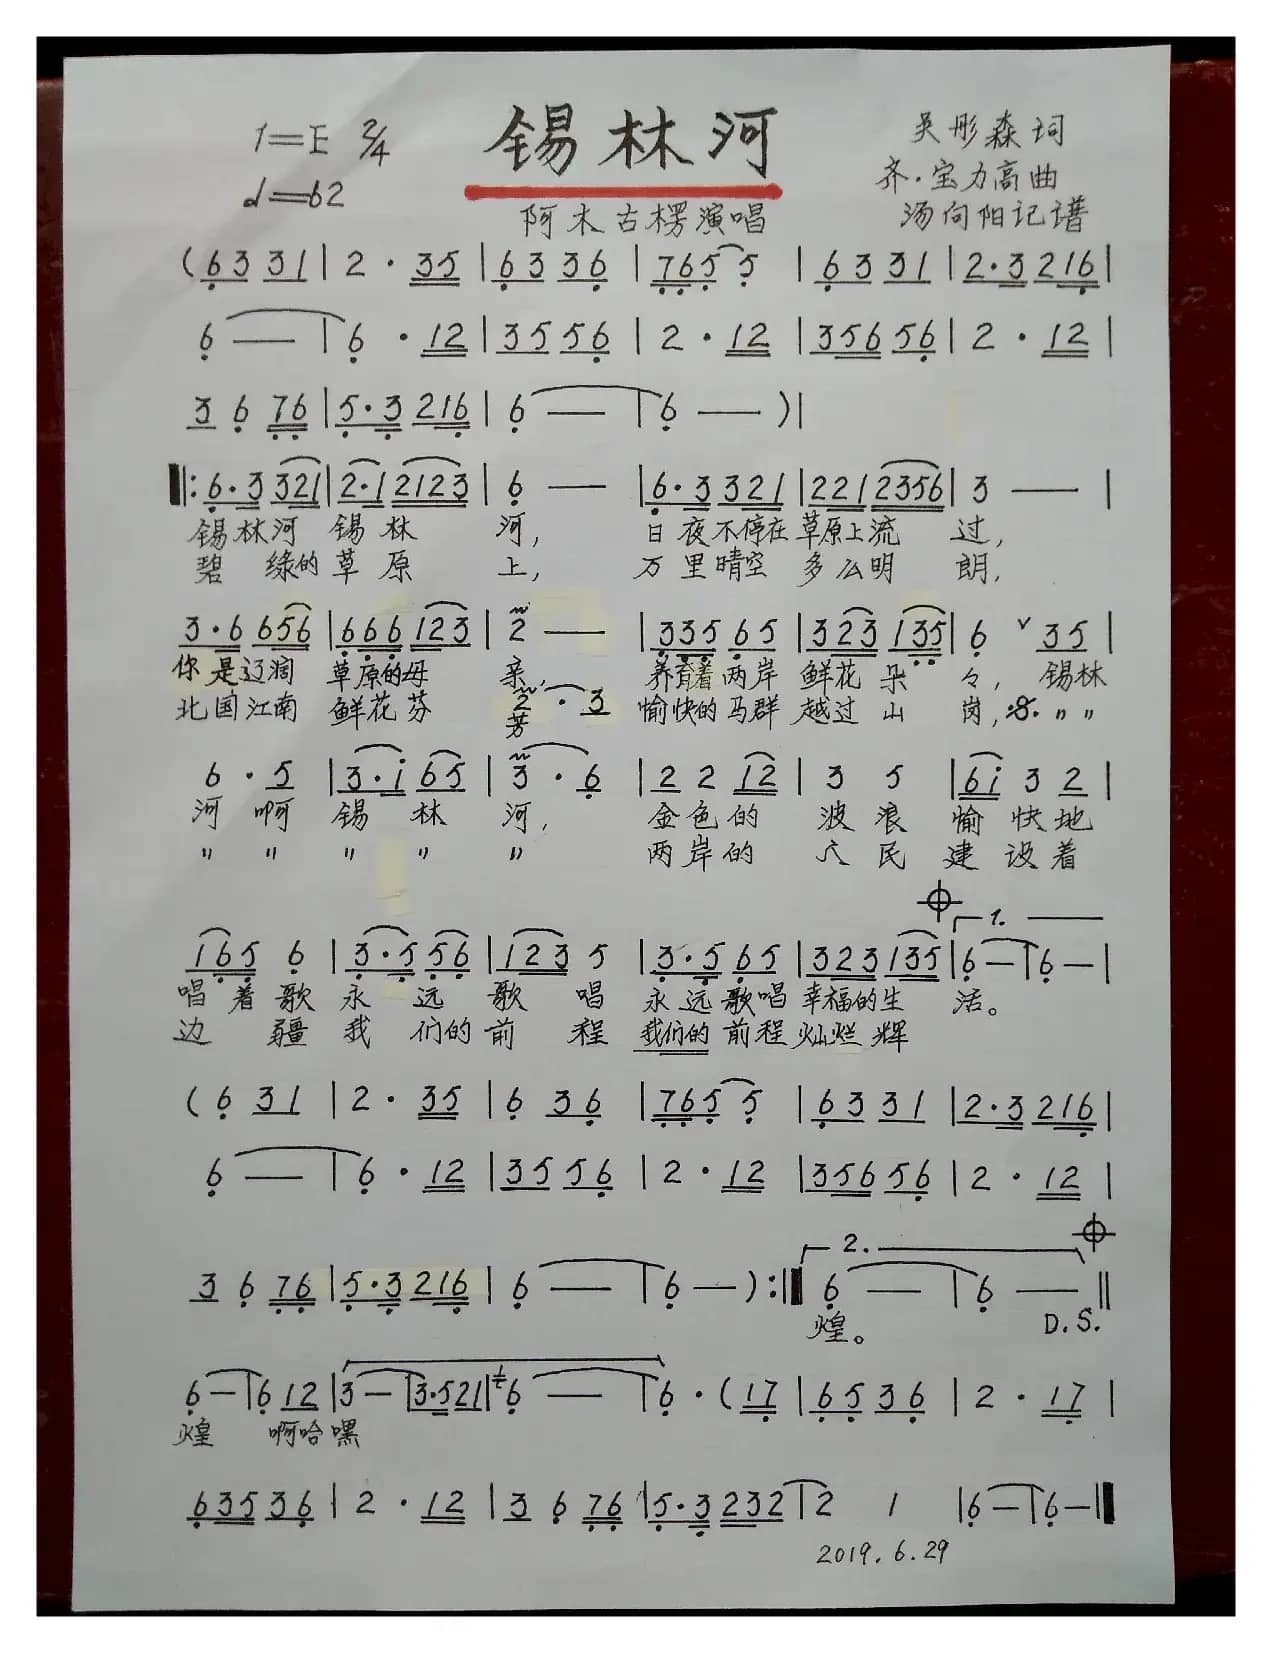 1=E 2/4
♩=62
锡林河
阿木古楞演唱
吴彤森词
齐·宝力高曲
汤向阳记谱
(6 3 3 1 | 2 · 3 5 | 6 3 3 6 | 7 6 5 5 | 6 3 3 1 | 2 · 3 2 1 6 |
6 — | 6 · 1 2 | 3 5 5 6 | 2 · 1 2 | 3 5 6 5 6 | 2 · 1 2 |
3 6 7 6 | 5 · 3 2 1 6 | 6 — | 6 — ) |
‖: 6 · 3 3 2 1 | 2 · 1 2 1 2 3 | 6 — | 6 · 3 3 2 1 | 2 2 1 2 3 5 6 | 3 — |
锡林河 锡林 河, 日夜不停在草原上流 过,
碧 绿的草原 上, 万里晴空 多么明 朗,
3 · 6 6 5 6 | 6 6 6 1 2 3 | 2 — | 3 3 5 6 5 | 3 2 3 1 3 5 | 6 ∨ 3 5 |
你是辽阔 草原的母 亲, 养育着两岸 鲜花 朵 々, 锡林
2 · 3
北国江南 鲜花芬 芳 愉快的马群 越过山 岗, :S: 〃 〃
6 · 5 | 3 · i 6 5 | 3 · 6 | 2 2 1 2 | 3 5 | 6 i 3 2 |
河 啊 锡 林 河, 金色的 波浪 愉 快地
〃 〃 〃 〃 〃 两岸的 人民 建设着
1.
1 6 5 6 | 3 · 5 5 6 | 1 2 3 5 | 3 · 5 6 5 | 3 2 3 1 3 5 | 6 — | 6 — |
唱 着歌 永 远 歌 唱 永远歌唱 幸福的生 活。
边 疆 我 们的前 程 我们的前程灿烂辉
( 6 3 1 | 2 · 3 5 | 6 3 6 | 7 6 5 5 | 6 3 3 1 | 2 · 3 2 1 6 |
6 — | 6 · 1 2 | 3 5 5 6 | 2 · 1 2 | 3 5 6 5 6 | 2 · 1 2 |
2.
3 6 7 6 | 5 · 3 2 1 6 | 6 — | 6 — ) :‖ 6 — | 6 — ‖
煌。 D.S.
6 — | 6 1 2 | 3 — | 3 · 5 2 1 | 6 — | 6 · ( 1 7 | 6 5 3 6 | 2 · 1 7 |
煌 啊哈嘿
6 3 5 3 6 | 2 · 1 2 | 3 6 7 6 | 5 · 3 2 3 2 | 2 1 | 6 — | 6 — ‖
2019.6.29